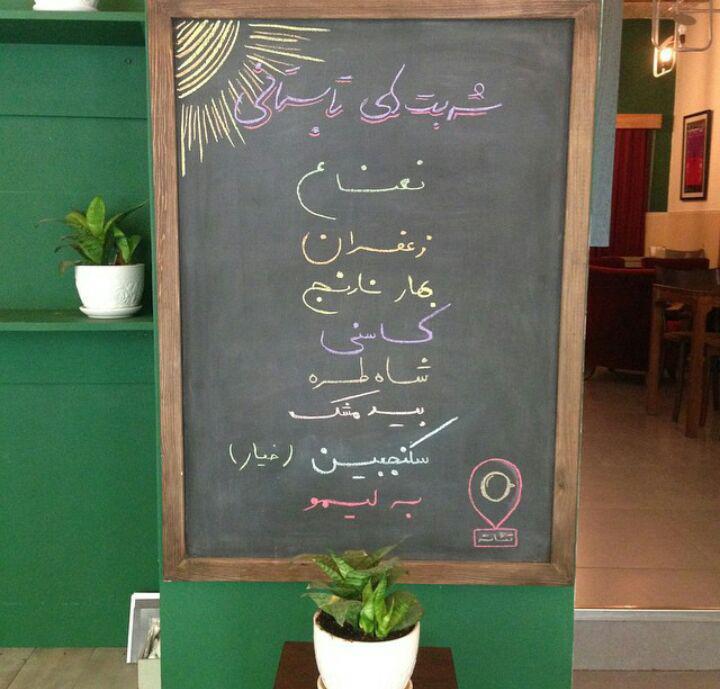 شربت های تابستانی
نعناع
زعفران
بهار نارنج
کاسنی
شاه طره
بیدمشک
سکنجبین (خیار)
به لیمو